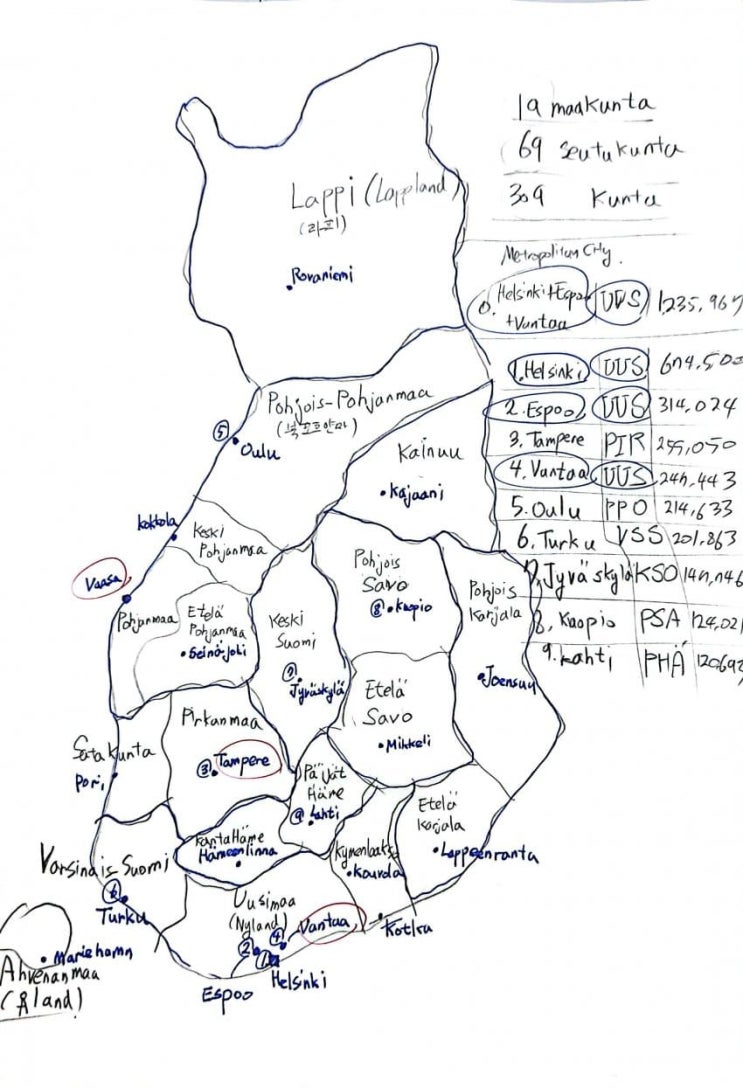 19 maakunta
69 seutukunta
309 Kunta
Metropolitan City.
0. Helsinki+Espoo
+Vantaa
UUS
1. Helsinki UUS
2. Espoo UUS 314,024
3. Tampere PIR
4. Vantaa UUS
5. Oulu PPO 214,633
6. Turku VSS 201,863
7. Jyväskylä KSO
8. Kuopio PSA
PHÄ
Lappi (Lappland)
(라피)
Rovaniemi
Pohjois-Pohjanmaa
⑤
Oulu
Kainuu
Kajaani
Kokkola
Keski
Pohjanmaa
Vaasa
Pohjanmaa
Etelä
Pohjanmaa
Seinäjoki
Keski
Suomi
⑦
Jyväskylä
Pohjois
Savo
⑧ Kuopio
Pohjois
Karjala
Joensuu
Etelä
Savo
Mikkeli
Pirkanmaa
③ Tampere
Satakunta
Pori
Päijät
Häme
⑨ Lahti
Kanta Häme
Hämeenlinna
Etelä
Karjala
Lappeenranta
Kouvola
Kotka
Varsinais-Suomi
⑥
Turku
Uusimaa
(Nyland)
Vantaa
② ④
①
Helsinki
Espoo
Mariehamn
Ahvenanmaa
(Åland)